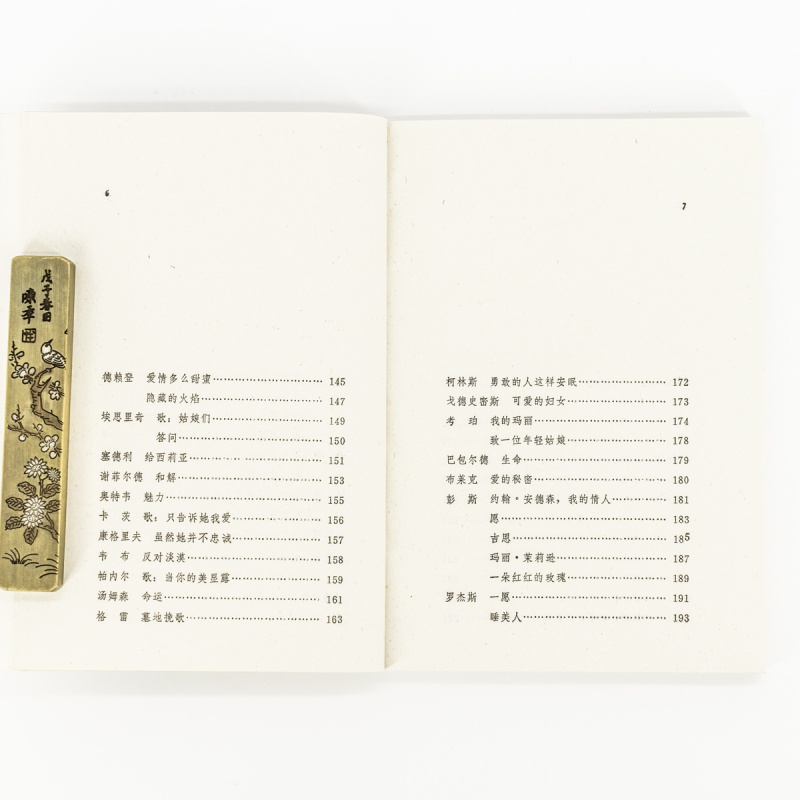 6
德赖登 爱情多么甜蜜……………………………… 145
隐藏的火焰……………………………… 147
埃思里奇 歌：姑娘们……………………………… 149
答问……………………………… 150
塞德利 给西莉亚……………………………… 151
谢菲尔德 和解……………………………… 153
奥特韦 魅力……………………………… 155
卡茨 歌：只告诉她我爱……………………………… 156
康格里夫 虽然她并不忠诚……………………………… 157
韦布 反对淡漠……………………………… 158
帕内尔 歌：当你的美显露……………………………… 159
汤姆森 命运……………………………… 161
格雷 墓地挽歌……………………………… 163
7
柯林斯 勇敢的人这样安眠……………………………… 172
戈德史密斯 可爱的妇女……………………………… 173
考珀 我的玛丽……………………………… 174
致一位年轻姑娘……………………………… 178
巴包尔德 生命……………………………… 179
布莱克 爱的秘密……………………………… 180
彭斯 约翰·安德森，我的情人……………………………… 181
愿……………………………… 183
吉恩……………………………… 185
玛丽·茉莉逊……………………………… 187
一朵红红的玫瑰……………………………… 189
罗杰斯 一愿……………………………… 191
睡美人……………………………… 193
戊子春日